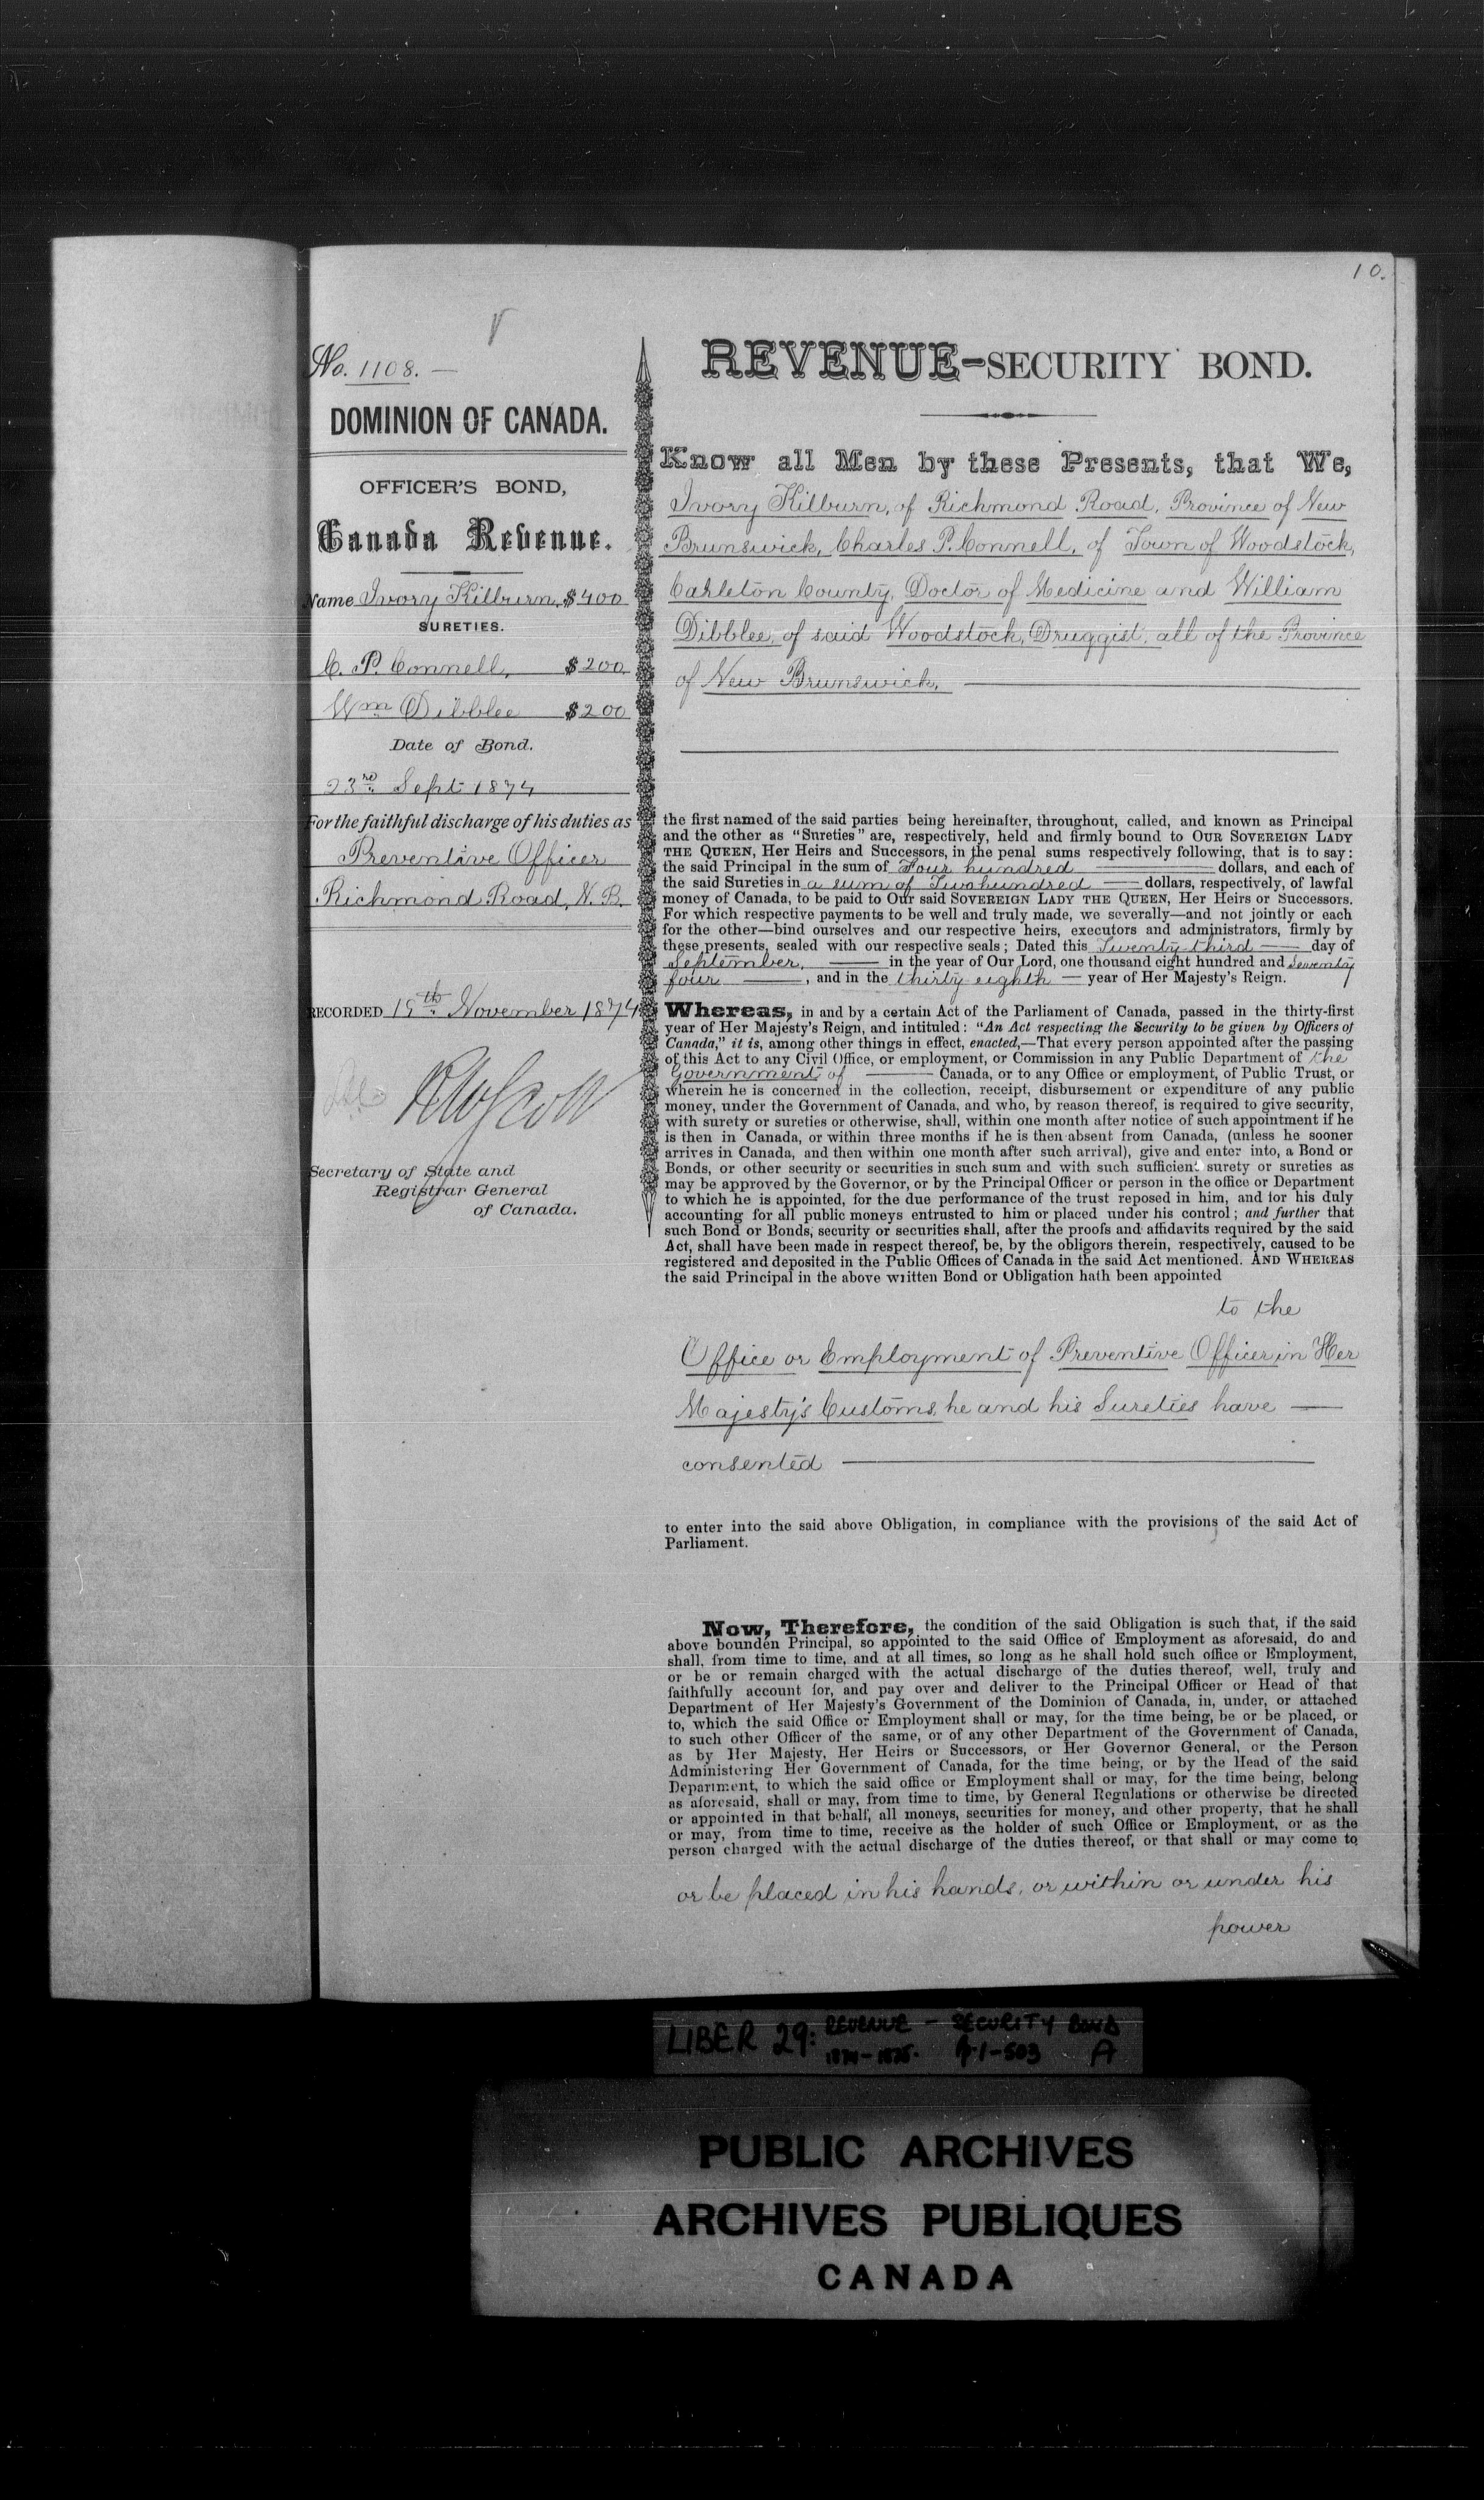 10.
No. 1108. —
DOMINION OF CANADA.
OFFICER'S BOND,
Canada Revenue.
Name Ivory Kilburn, $400
SURETIES.
C. P. Connell, $200
Wm Dibblee $200
Date of Bond.
23rd Sept 1874
For the faithful discharge of his duties as
Preventive Officer
Richmond Road, N. B.
RECORDED 19th November 1874
RWScott
Secretary of State and
Registrar General
of Canada.
REVENUE-SECURITY BOND.
Know all Men by these Presents, that We,
Ivory Kilburn, of Richmond Road, Province of New
Brunswick, Charles P. Connell, of Town of Woodstock,
Carleton County, Doctor of Medicine and William
Dibblee, of said Woodstock, Druggist, all of the Province
of New Brunswick,
the first named of the said parties being hereinafter, throughout, called, and known as Principal
and the other as "Sureties" are, respectively, held and firmly bound to OUR SOVEREIGN LADY
THE QUEEN, Her Heirs and Successors, in the penal sums respectively following, that is to say:
the said Principal in the sum of Four hundred dollars, and each of
the said Sureties in a sum of Two hundred dollars, respectively, of lawful
money of Canada, to be paid to Our said SOVEREIGN LADY THE QUEEN, Her Heirs or Successors.
For which respective payments to be well and truly made, we severally—and not jointly or each
for the other—bind ourselves and our respective heirs, executors and administrators, firmly by
these presents, sealed with our respective seals; Dated this Twenty third day of
September, in the year of Our Lord, one thousand eight hundred and seventy
four , and in the thirty eighth year of Her Majesty's Reign.
Whereas, in and by a certain Act of the Parliament of Canada, passed in the thirty-first
year of Her Majesty's Reign, and intituled: "An Act respecting the Security to be given by Officers of
Canada," it is, among other things in effect, enacted,—That every person appointed after the passing
of this Act to any Civil Office, or employment, or Commission in any Public Department of the
Government of Canada, or to any Office or employment, of Public Trust, or
wherein he is concerned in the collection, receipt, disbursement or expenditure of any public
money, under the Government of Canada, and who, by reason thereof, is required to give security,
with surety or sureties or otherwise, shall, within one month after notice of such appointment if he
is then in Canada, or within three months if he is then absent from Canada, (unless he sooner
arrives in Canada, and then within one month after such arrival), give and enter into, a Bond or
Bonds, or other security or securities in such sum and with such sufficient surety or sureties as
may be approved by the Governor, or by the Principal Officer or person in the office or Department
to which he is appointed, for the due performance of the trust reposed in him, and for his duly
accounting for all public moneys entrusted to him or placed under his control; and further that
such Bond or Bonds, security or securities shall, after the proofs and affidavits required by the said
Act, shall have been made in respect thereof, be, by the obligors therein, respectively, caused to be
registered and deposited in the Public Offices of Canada in the said Act mentioned. AND WHEREAS
the said Principal in the above written Bond or Obligation hath been appointed
to the
Office or Employment of Preventive Officer in Her
Majesty's Customs, he and his Sureties have —
consented
to enter into the said above Obligation, in compliance with the provisions of the said Act of
Parliament.
Now, Therefore, the condition of the said Obligation is such that, if the said
above bounden Principal, so appointed to the said Office of Employment as aforesaid, do and
shall, from time to time, and at all times, so long as he shall hold such office or Employment,
or be or remain charged with the actual discharge of the duties thereof, well, truly and
faithfully account for, and pay over and deliver to the Principal Officer or Head of that
Department of Her Majesty's Government of the Dominion of Canada, in, under, or attached
to, which the said Office or Employment shall or may, for the time being, be or be placed, or
to such other Officer of the same, or of any other Department of the Government of Canada,
as by Her Majesty, Her Heirs or Successors, or Her Governor General, or the Person
Administering Her Government of Canada, for the time being, or by the Head of the said
Department, to which the said office or Employment shall or may, for the time being, belong
as aforesaid, shall or may, from time to time, by General Regulations or otherwise be directed
or appointed in that behalf, all moneys, securities for money, and other property, that he shall
or may, from time to time, receive as the holder of such Office or Employment, or as the
person charged with the actual discharge of the duties thereof, or that shall or may come to
or be placed in his hands, or within or under his
power
LIBER 29: REVENUE - SECURITY BOND
1874-1875. p.1-503 A
PUBLIC ARCHIVES
ARCHIVES PUBLIQUES
CANADA